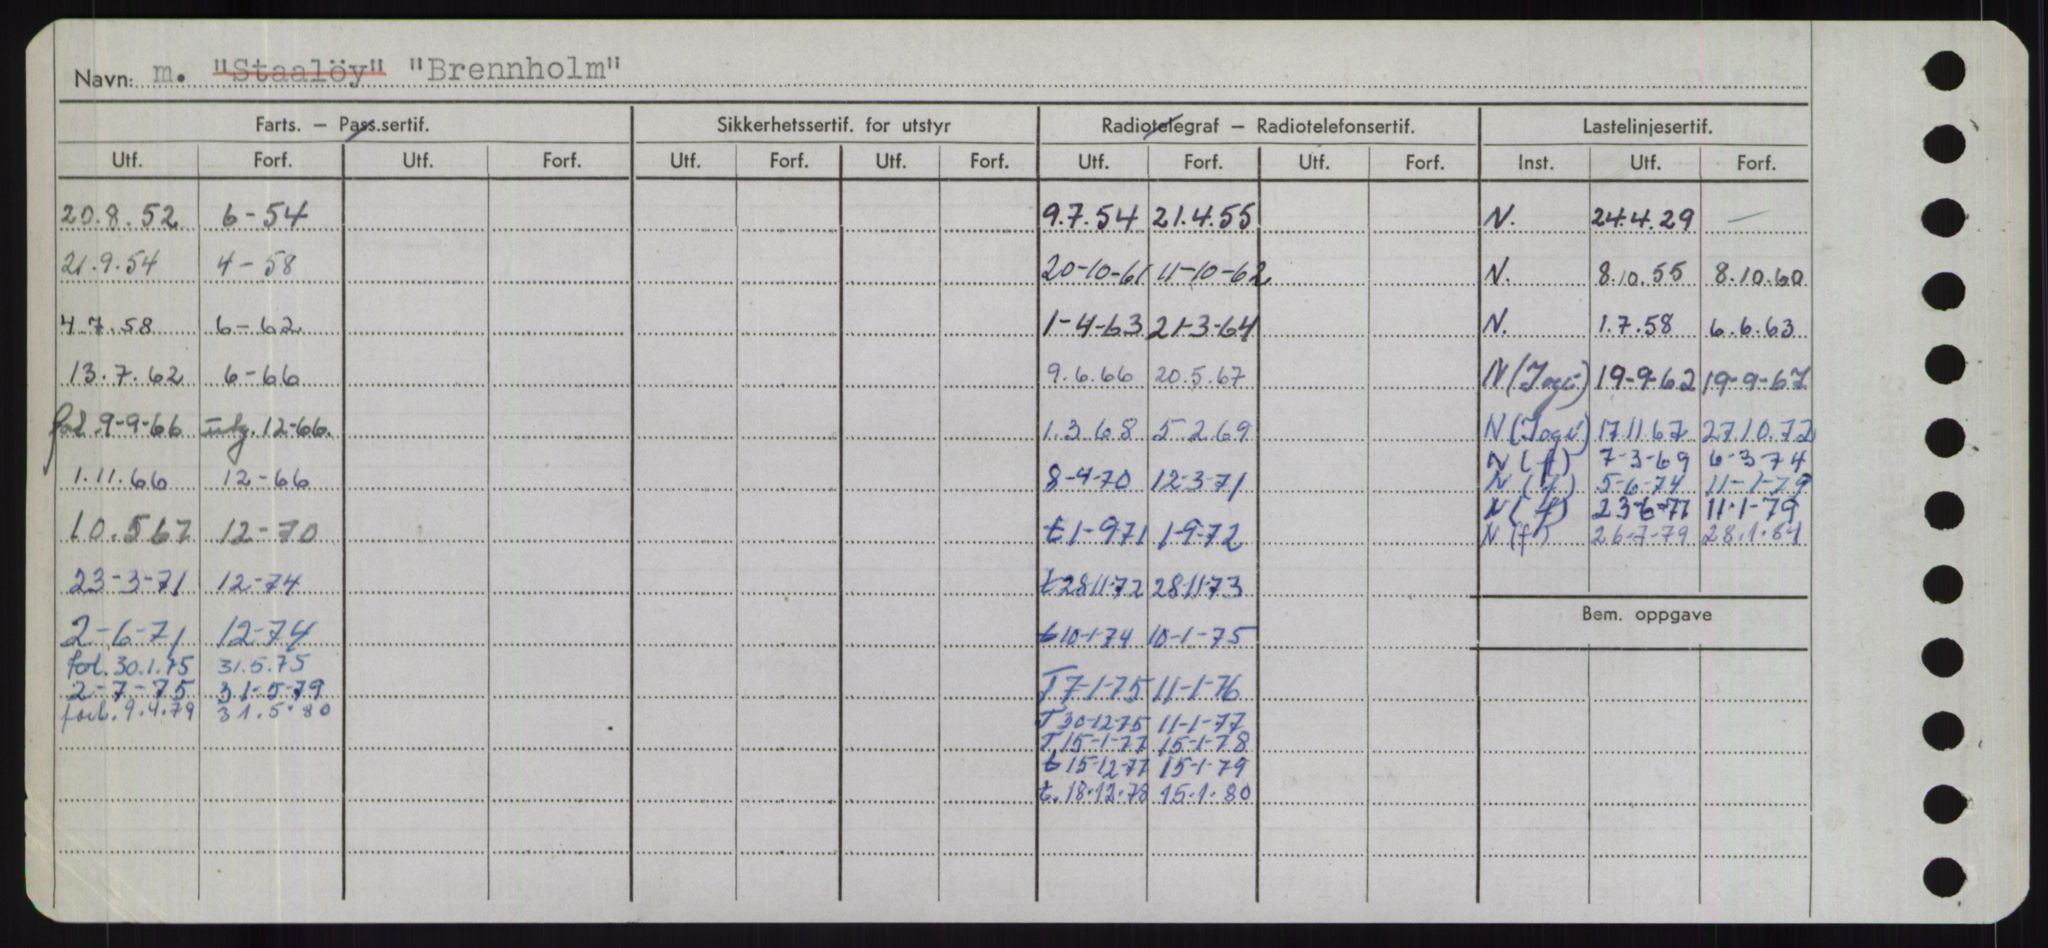 Navn: m. "Staalöy" "Brennholm"
Farts. – Pass.sertif. Sikkerhetssertif. for utstyr Radiotelegraf – Radiotelefonsertif. Lastelinjesertif.
Utf. Forf. Utf. Forf. Utf. Forf. Utf. Forf. Utf. Forf. Utf. Forf. Inst. Utf. Forf.
20.8.52 6-54 9.7.54 21.4.55 N. 24.4.29 —
21.9.54 4-58 20-10-61 11-10-62 N. 8.10.55 8.10.60
4.7.58 6-62 1-4-63 21-3-64 N. 1.7.58 6.6.63
13.7.62 6-66 9.6.66 20.5.67 N 19-9-62 19-9-67
9-9-66 12-66. 1.3.68 5.2.69 N 17.11.67 27.10.72
N (f) 7-3-69 6-3-74
1.11.66 12-66 8-4-70 12-3-71 N (f) 5-6-74 11-1-79
N (f) 23-6-77 11-1-79
10.5.67 12-70 t 1-9.71 1-9-72 N (f) 26-7-79 28.1.84
23-3-71 12-74 t 28.11.72 28.11.73
Bem. oppgave
2-6-71 12-74 t 10-1-74 10-1-75
fol. 30.1.75 31.5.75
2-7-75 31-5-79 T 7-1-75 11-1-76
forl. 9.4.79 31.5.80 T 30-12-75 11-1-77
T 15-1-77 15-1-78
t 15-12-77 15-1-79
t. 18.12.78 15.1.80